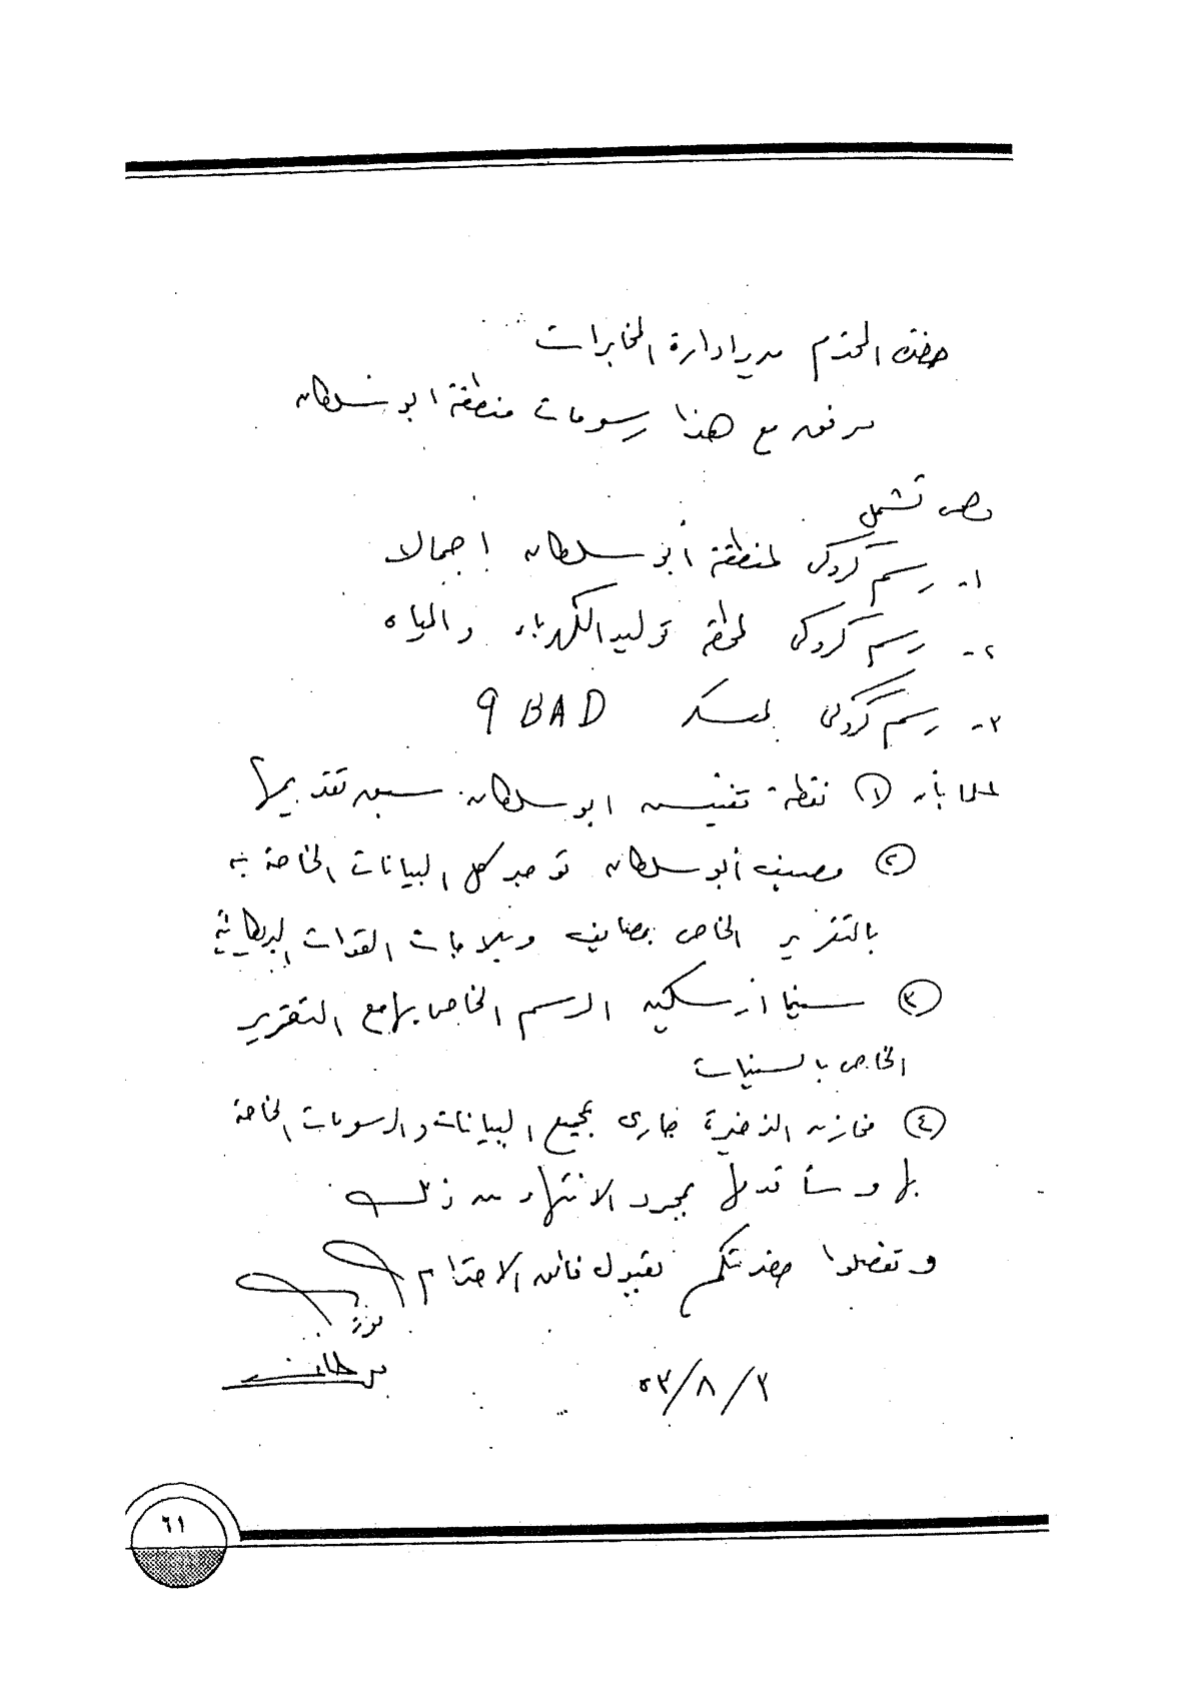 حضرة المحترم مدير ادارة المخابرات
مرفق مع هذا رسومات منطقة ابو سلطان
وهى تشمل
١- رسم كروكى لمنطقة أبو سلطان اجمالا
٢- رسم كروكى لمحطة توليد الكهرباء والمياه
٣- رسم كروكى لمعسكر 9 BAD
علما بأن ① نقطة تفتيش ابو سلطان سبق تقديمها
② مصيف أبو سلطان توجد كل البيانات الخاصة به
بالتقرير الخاص بمصايف وبلاجات القوات البريطانية
③ سينما الرسم الخاص بها مع التقرير
الخاص بالسينمات
④ مخازن الذخيرة جارى تجميع البيانات والرسومات الخاصة
بها وسأقدمها بمجرد الانتهاء من ذلك
وتفضلوا حضرتكم بقبول فائق الاحترام
٥٣/٨/٣
٦١